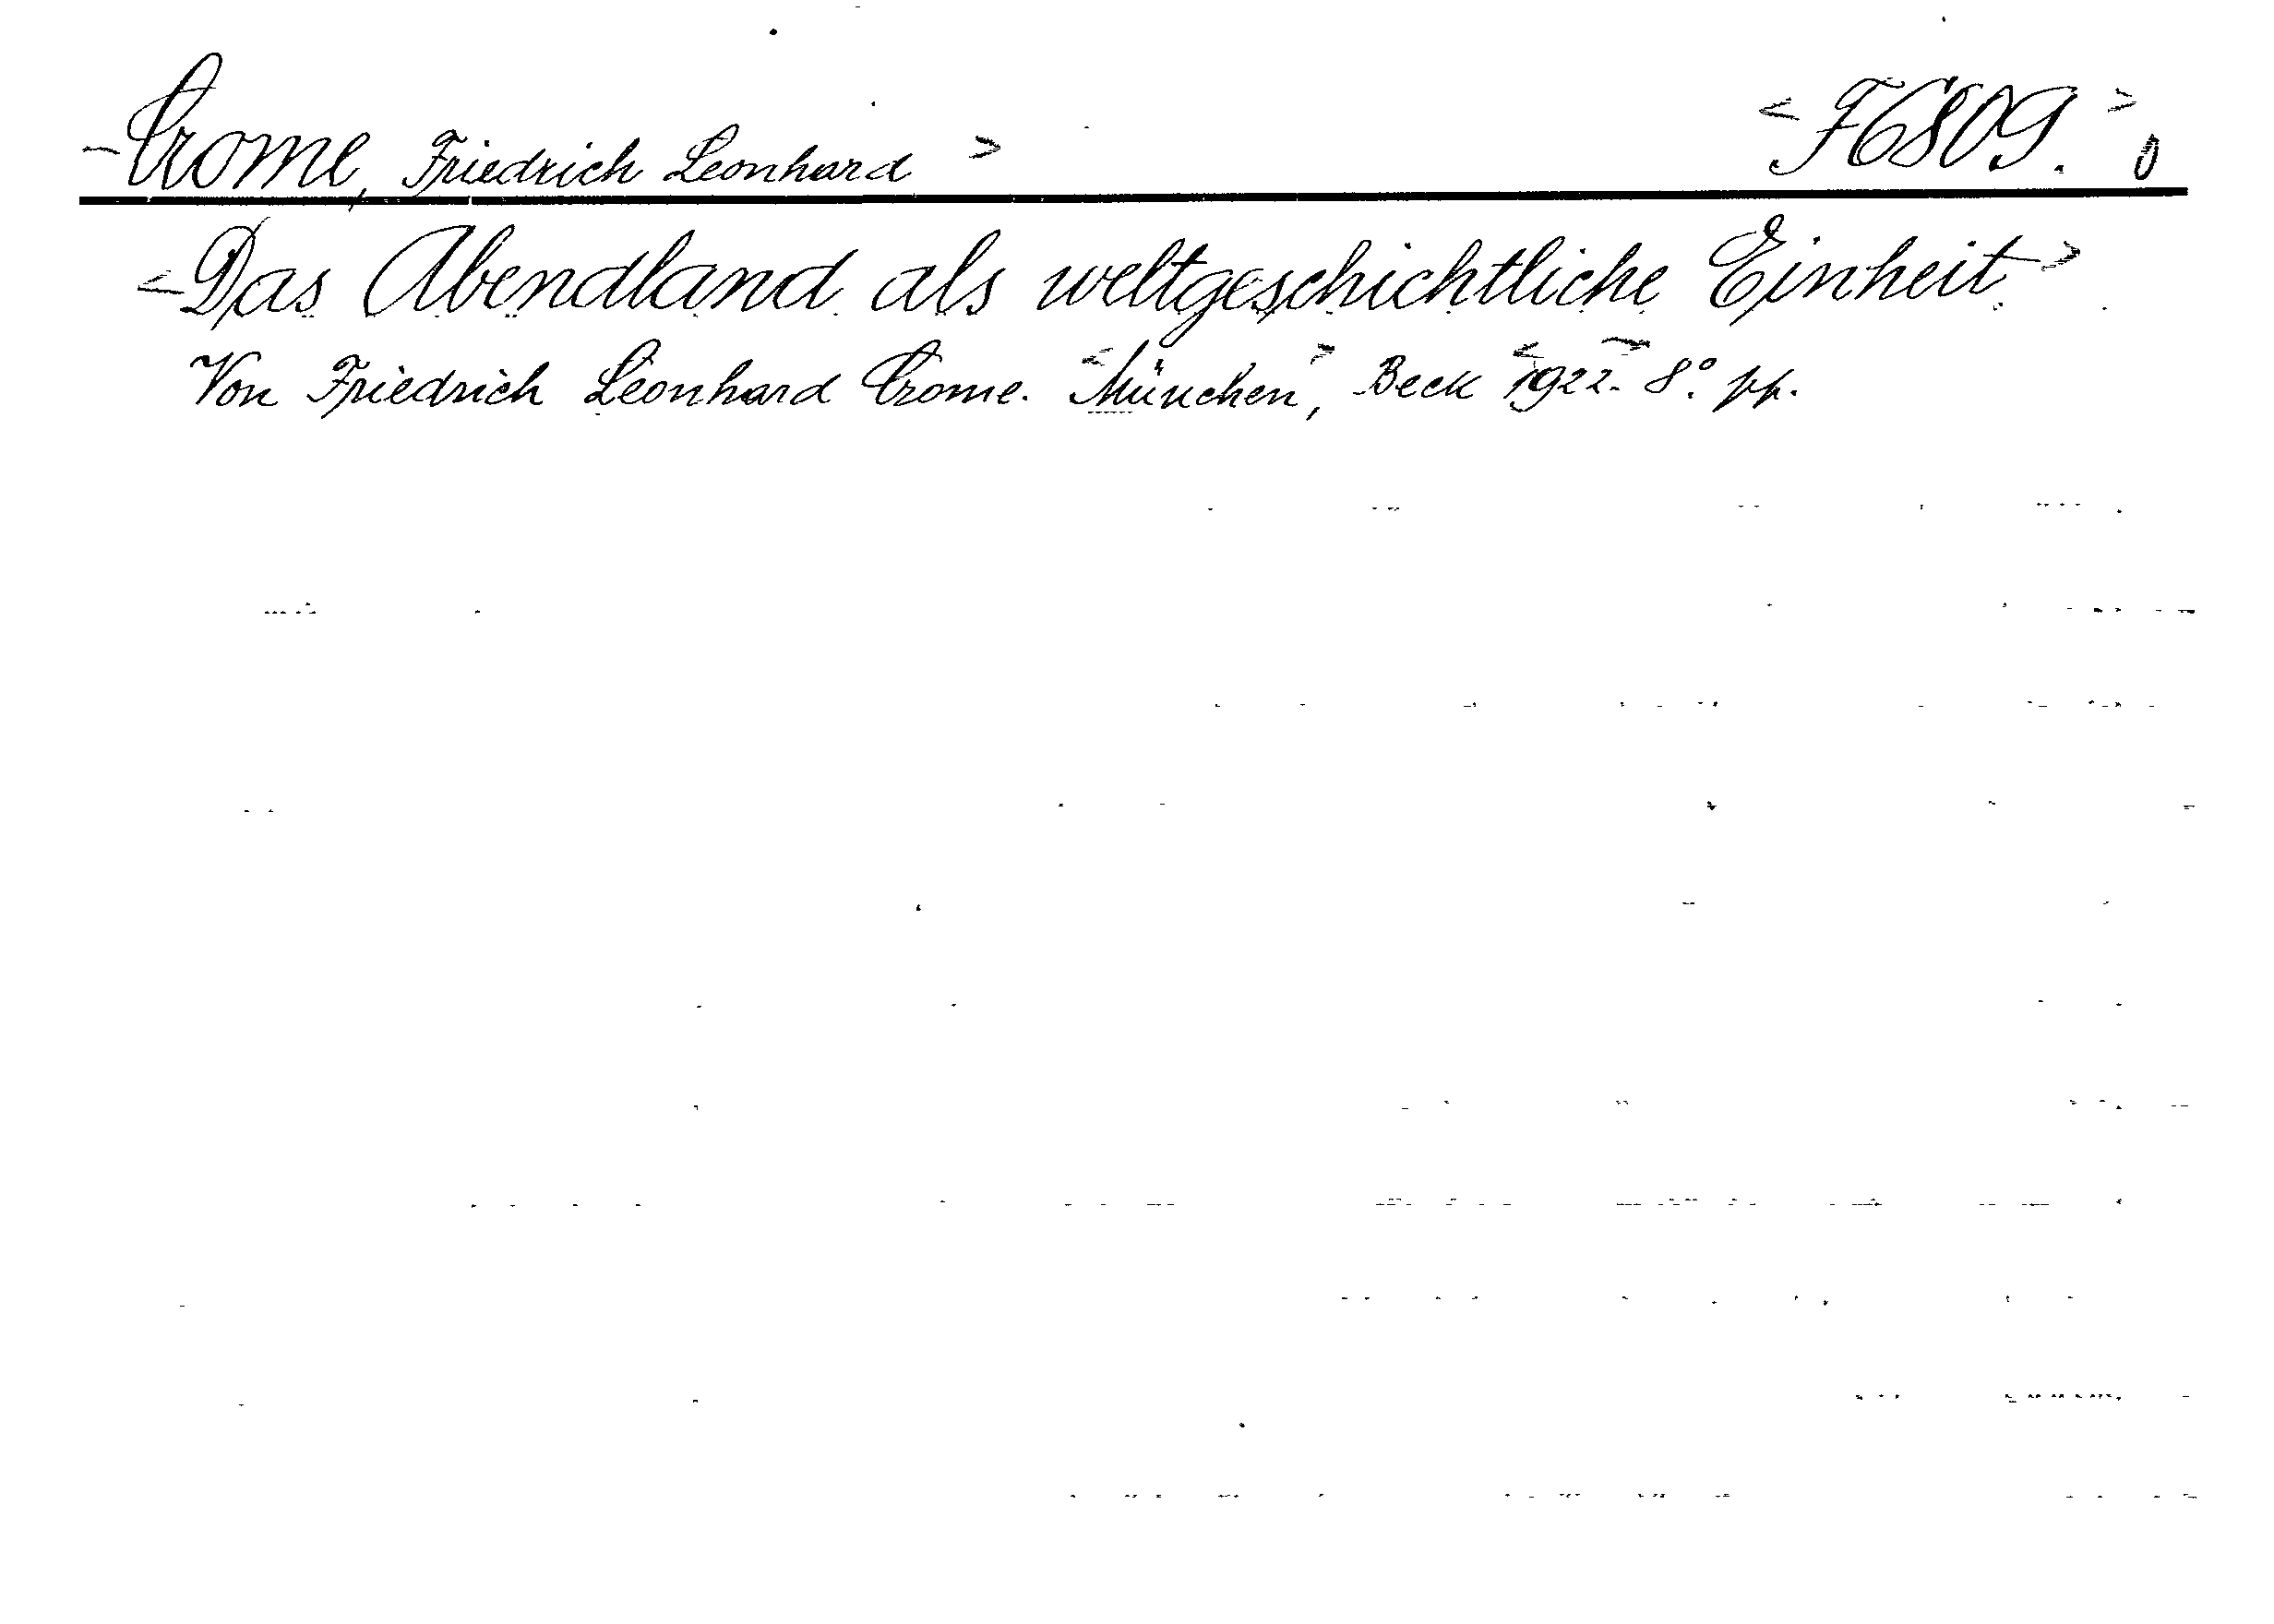 <Crome, Friedrich Leonhard> <F6809.> 0
<Das Abendland als weltgeschichtliche Einheit.>
Von Friedrich Leonhard Crome. <München>, Beck <1922.> 8°. pp.